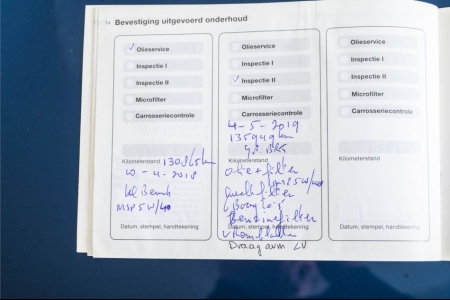 14 Bevestiging uitgevoerd onderhoud
Olieservice
Inspectie I
Inspectie II
Microfilter
Carrosseriecontrole
Kilometerstand
10-4-2018
MSP 5W/40
Datum, stempel, handtekening
Olieservice
Inspectie I
Inspectie II
Microfilter
Carrosseriecontrole
4-5-2019
135949 km
Kilometerstand
olie + filter
MSP 5W/40
Luchtfilter
Bougies
Benzinefilter
Datum, stempel, handtekening
Draagarm LV
Olieservice
Inspectie I
Inspectie II
Microfilter
Carrosseriecontrole
Kilometerstand
Datum, stempel, handtekening